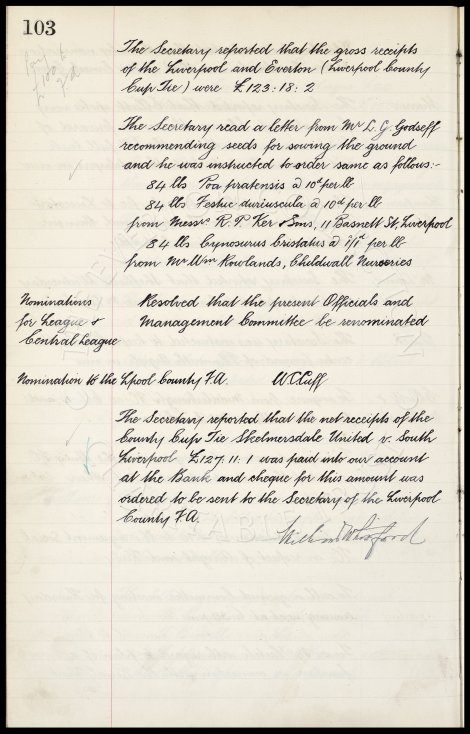 103
The Secretary reported that the gross receipts
of the Liverpool and Everton (Liverpool County
Cup Tie) were £123:18:2
The Secretary read a letter from Mr L. G. Godseff
recommending seeds for sowing the ground
and he was instructed to order same as follows:-
84 lbs Poa pratensis @ 10d per lb
84 lbs Festuc duriuscula @ 10d per lb
from Messrs R. P. Ker & Sons, 11 Basnett St, Liverpool
84 lbs Cynosurus Cristatus @ 1/1d per lb
from Mr Wm Rowlands, Childwall Nurseries
Nominations Resolved that the present Officials and
for League & Management Committee be renominated
Central League
Nomination to the Lpool County F.A. W C Cuff
The Secretary reported that the net receipts of the
County Cup Tie Skelmersdale United v. South
Liverpool £127:11:1 was paid into our account
at the Bank and cheque for this amount was
ordered to be sent to the Secretary of the Liverpool
County F.A.